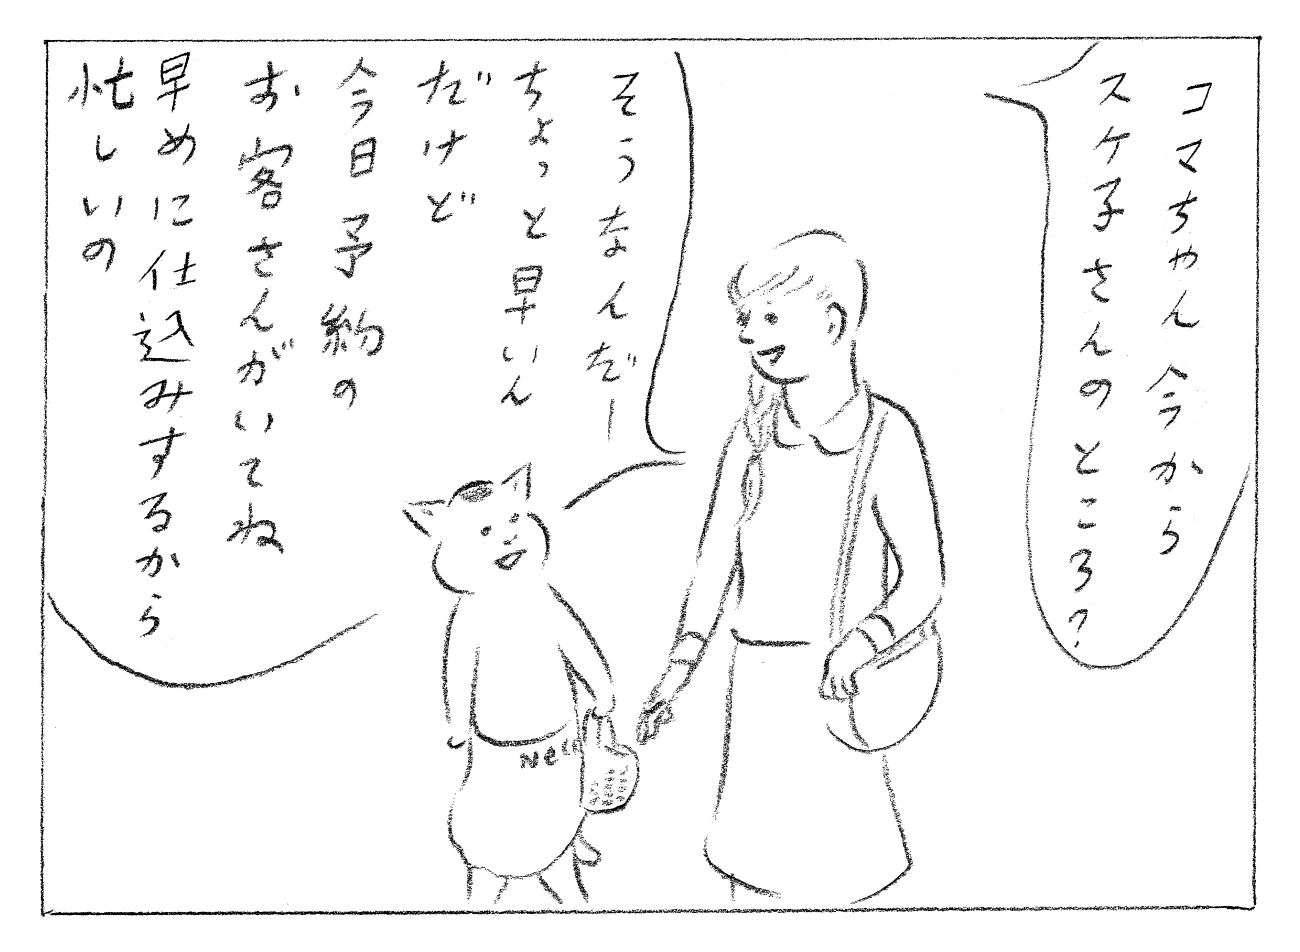 コマちゃん今から
スケ子さんのところ?
そうなんだー
ちょっと早いん
だけど
今日予約の
お客さんがいてね
早めに仕込みするから
忙しいの
Neco